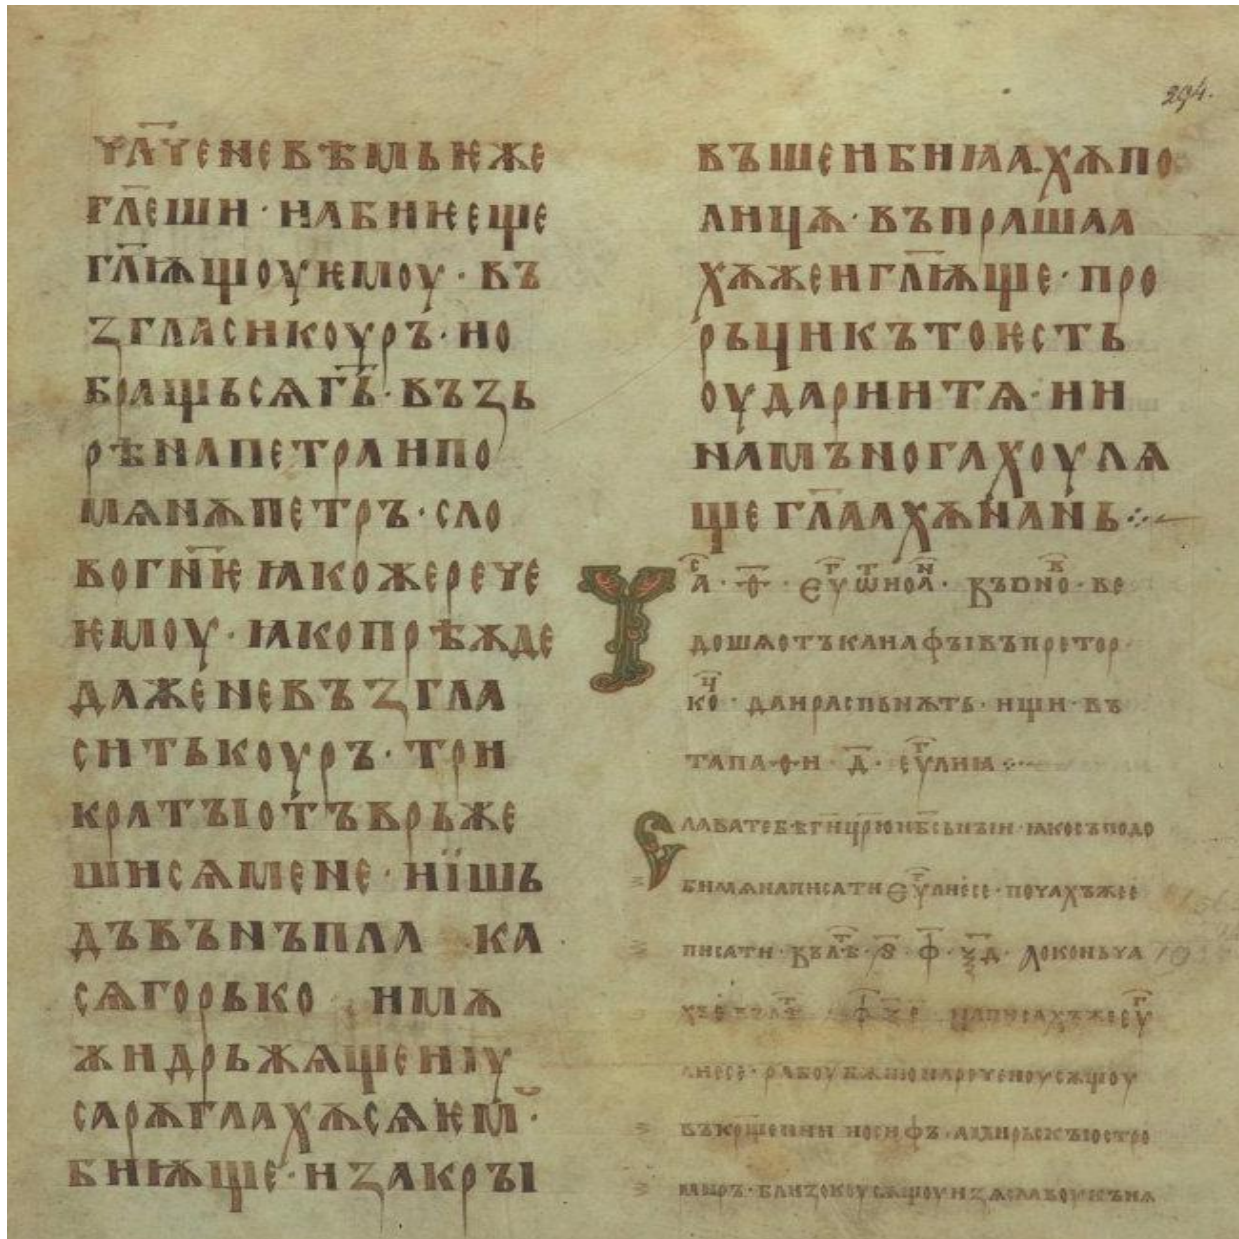 294.
чл҃че не вѣмь ѥже
гл҃еши · и абиѥ еще
гл҃ѭщоу ѥмоу · въ
згласи коуръ · и о
бращь сѧ г҃ь · възь
рѣ на петра и по
мѧнѫ петръ · сло
во гн҃ѥ ꙗкоже рече
ѥмоу · ꙗко прѣжде
даже не възгла
сить коуръ · три
кратꙑ отъврьже
ши сѧ мене · и ишь
дъ вънъ пла ка
сѧ горько и мѫ
жи дрьжѧщеи іу
са рѫглахѫ сѧ ѥм ·
биѭще · и закрꙑ
въше и биꙗахѫ по
лицѫ · въпрашаа
хѫ же и гл҃ѭще · про
рьци къто ѥсть
оударии тѧ · и и
на мънога хоулѧ
ще гл҃аахѫ на нь ·:·
Ча ѳ · еу ѿ иоа · Въ оно · ве
дошѧ отъ канафꙑ въ претор ·
ко · да и распьнѫть · ищи въ
та па ѳ и · д · еулиꙗ ·:·
Слава тебѣ ги҃ цр҃ю нб҃сьнꙑи · ꙗко съподо
би мѧ написати еулие се · почахъ же е
писати · Въ лѣ · ѕ · ф · ѯд · А оконьча
хъ е въ лѣ · ф · ѯе · написахъ же еу
лие се · рабоу бж҃ию нареченоу сѫщоу
въ крщении иосифъ · а мирьскꙑ остро
миръ · близокоу сѫщоу изѧславоу кънѧ